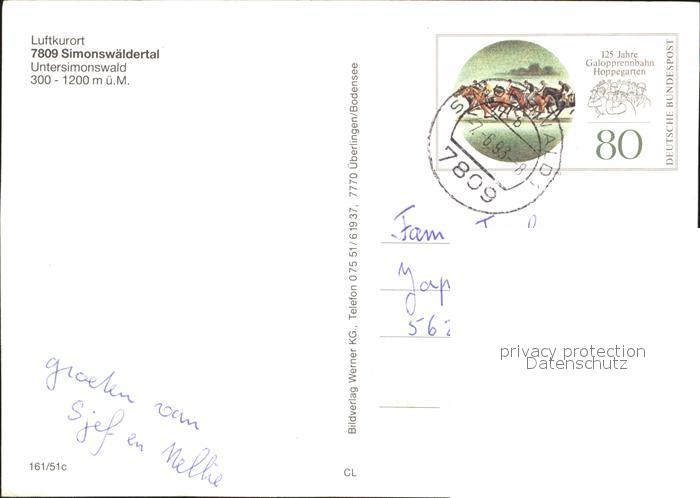 Luftkurort
7809 Simonswäldertal
Untersimonswald
300 - 1200 m ü.M.
125 Jahre
Galopprennbahn
Hoppegarten
80
DEUTSCHE BUNDESPOST
7809
Bildverlag Werner KG., Telefon 0 75 51/6 19 37, 7770 Überlingen/Bodensee
Fam
562
privacy protection
Datenschutz
groeten van
Sjef en Nellie
161/51c
CL